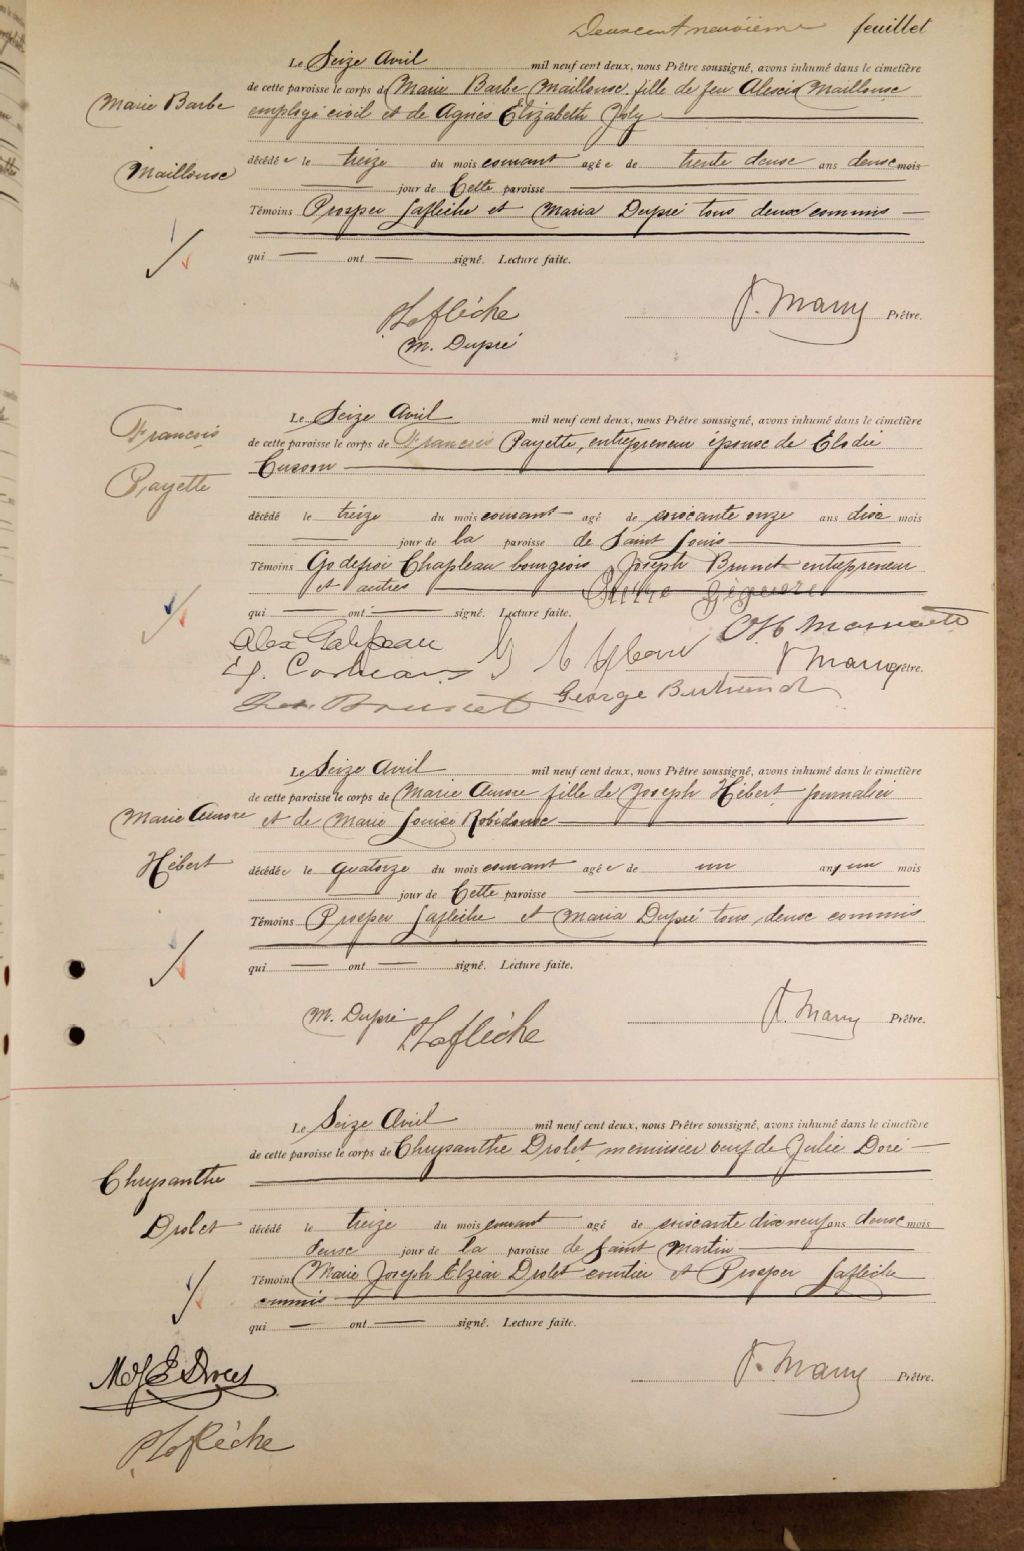 Deux cent neuvième feuillet
Le Seize Avril mil neuf cent deux, nous Prêtre soussigné, avons inhumé dans le cimetière
de cette paroisse le corps de Marie Barbe Mailloux fille de feu Alexis Mailloux
Marie Barbe
employé civil et de Agnès Elizabeth Joly
Mailloux
décédée le treize du mois courant agée de trente deux ans deux mois
jour de Cette paroisse
Témoins Prosper Laflèche et Maria Dupré tous deux commis
qui ont signé. Lecture faite.
P Laflèche
M. Dupré
Prêtre.
François
Payette
Le Seize Avril mil neuf cent deux, nous Prêtre soussigné, avons inhumé dans le cimetière
de cette paroisse le corps de François Payette, entrepreneur époux de Elodie
Cusson
décédé le treize du mois courant agé de soixante onze ans dix mois
jour de la paroisse de Saint Louis
Témoins Godefroi Chapleau bourgeois Joseph Brunet entrepreneur
et autres
qui ont signé. Lecture faite.
George Bertrand
Brunet
Prêtre.
Le Seize Avril mil neuf cent deux, nous Prêtre soussigné, avons inhumé dans le cimetière
de cette paroisse le corps de Marie Aurore fille de Joseph Hébert journalier
Marie Aurore
et de Marie Louise Robidoux
Hébert
décédée le quatorze du mois courant agée de un an un mois
jour de Cette paroisse
Témoins Prosper Laflèche et Maria Dupré tous deux commis
qui ont signé. Lecture faite.
M. Dupré
P Laflèche
Prêtre.
Le Seize Avril mil neuf cent deux, nous Prêtre soussigné, avons inhumé dans le cimetière
de cette paroisse le corps de Chrysanthe Drolet menuisier veuf de Julie Doré
Chrysanthe
Drolet
décédé le treize du mois courant agé de soixante dix neuf ans deux mois
deux jour de la paroisse de Saint Martin
Témoins Marie Joseph Elzéar Drolet courtier et Prosper Laflèche
commis
qui ont signé. Lecture faite.
Prêtre.
P Laflèche